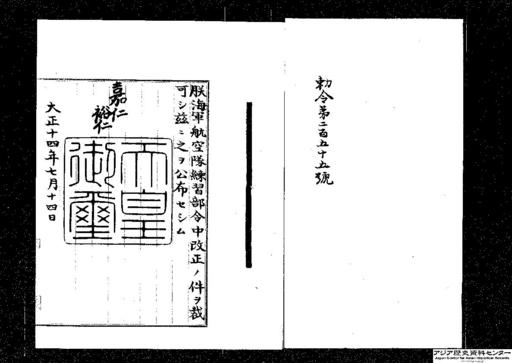 勅令第二百五十五號
朕海軍航空隊練習部令中改正ノ件ヲ裁
可シ茲ニ之ヲ公布セシム
嘉仁
裕仁
天皇
御璽
大正十四年七月十四日
アジア歴史資料センター
Japan Center for Asian Historical Records